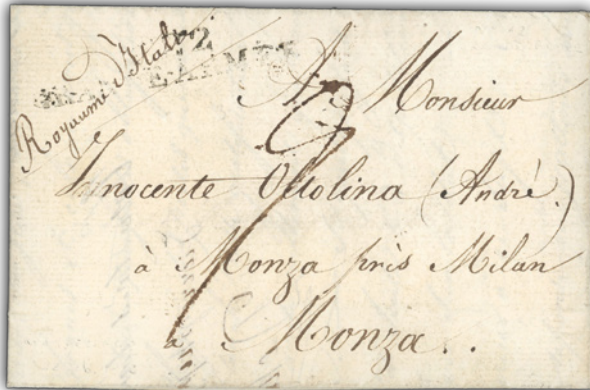 Royaume d'Italie
12
A Monsieur
Innocente Ottolina (André)
à Monza près Milan
à Monza..